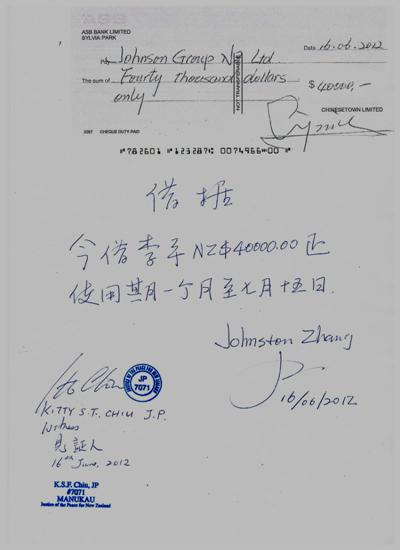 ASB BANK LIMITED
SYLVIA PARK
Date 16.06.2012
Pay Johnson Group NZ Ltd.
The sum of Fourty thousand dollars
only
$ 40000,-
NOT TRANSFERABLE
CHINESETOWN LIMITED
CHEQUE DUTY PAID
借据
今借李平NZ$40000.00正
使用其月一个月至七月十五日.
Johnston Zhang
16/06/2012
JP
7071
KITTY S.T. CHIU J.P.
Witness
見証人
16th June, 2012
K.S.F. Chiu, JP
#7071
MANUKAU
Justice of the Peace for New Zealand